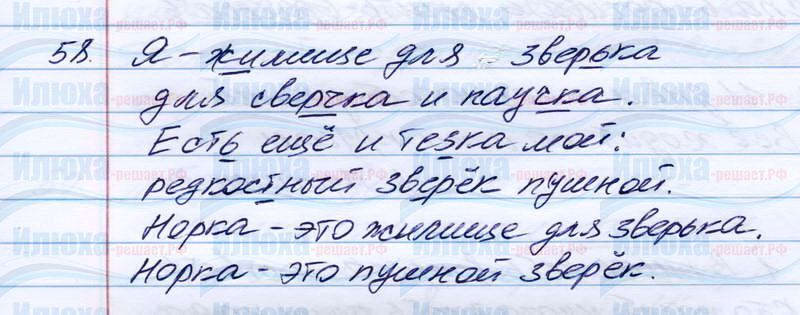 58. Я - жилище для зверька
для сверчка и паучка.
Есть ещё и тезка мой:
редкостный зверёк пушной.
Норка - это жилище для зверька.
Норка - это пушной зверёк.